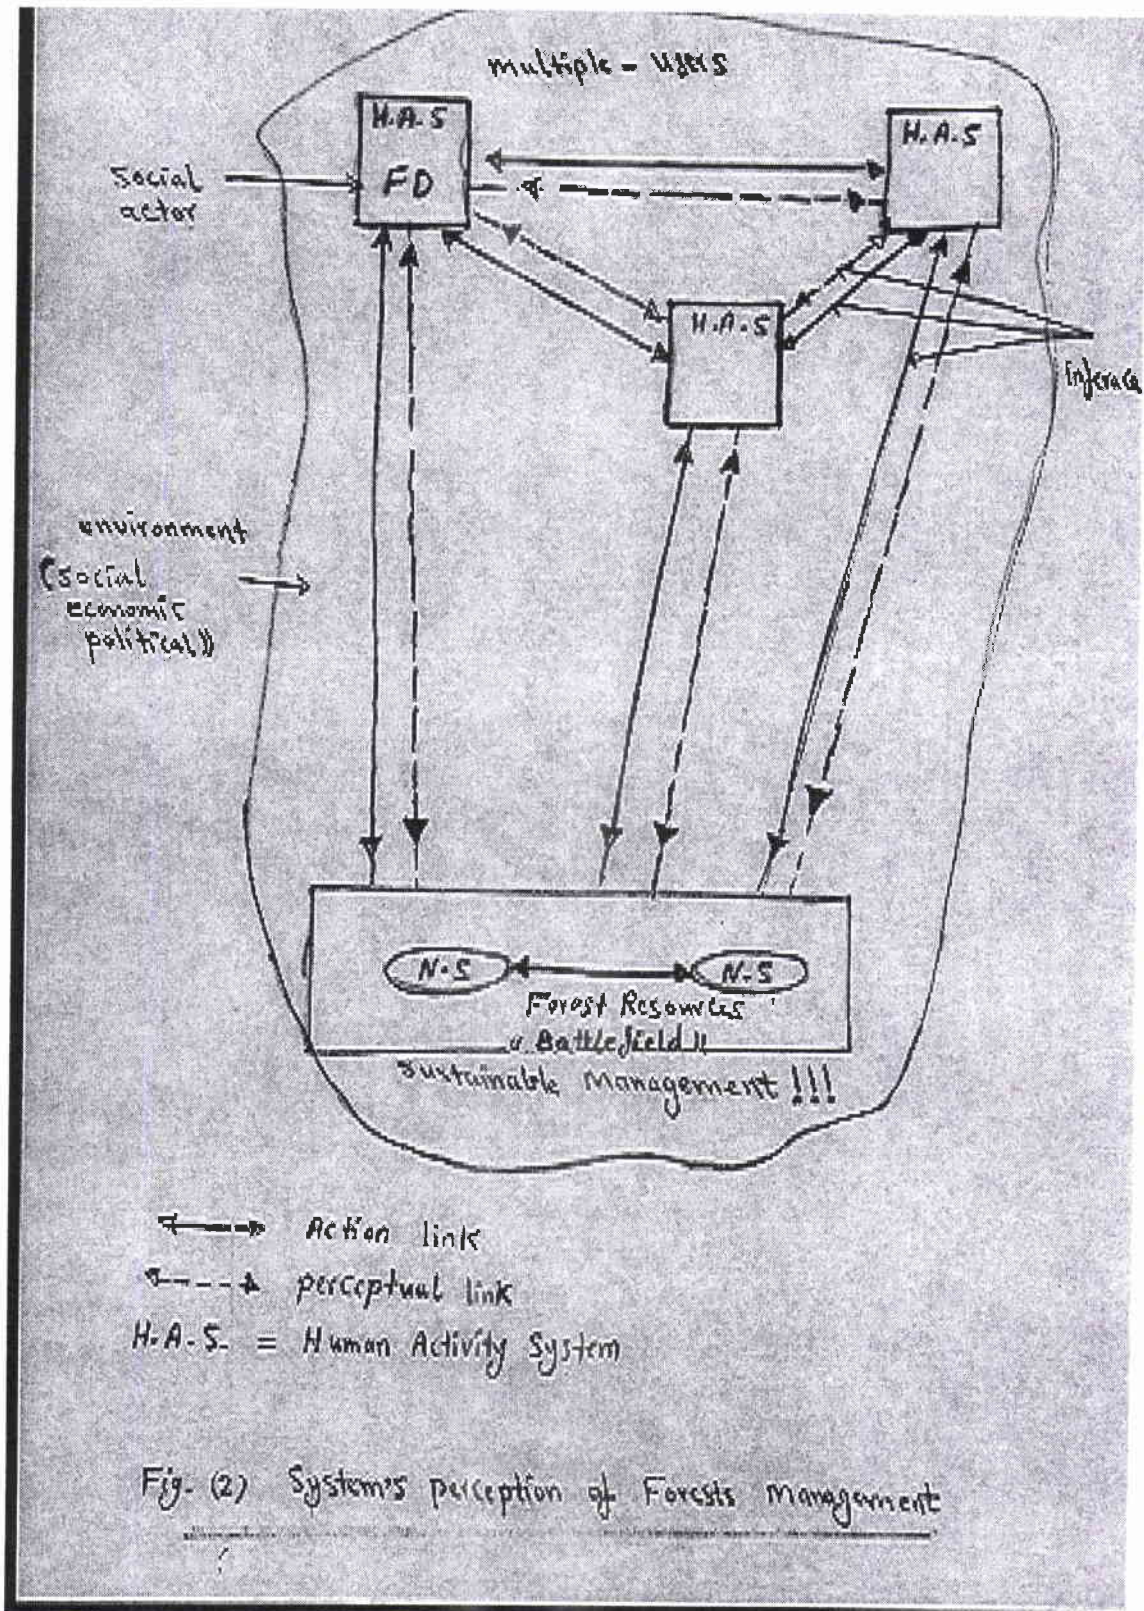 multiple - users
H.A-S
FD
H.A-S
social
actor
H.A-S
inferace
environment
(social
economic
political))
N-S
N-S
Forest Resources
"Battlefield"
sustainable management !!!
Action link
perceptual link
H.A-S- = Human Activity System
Fig- (2) System's perception of Forests Management